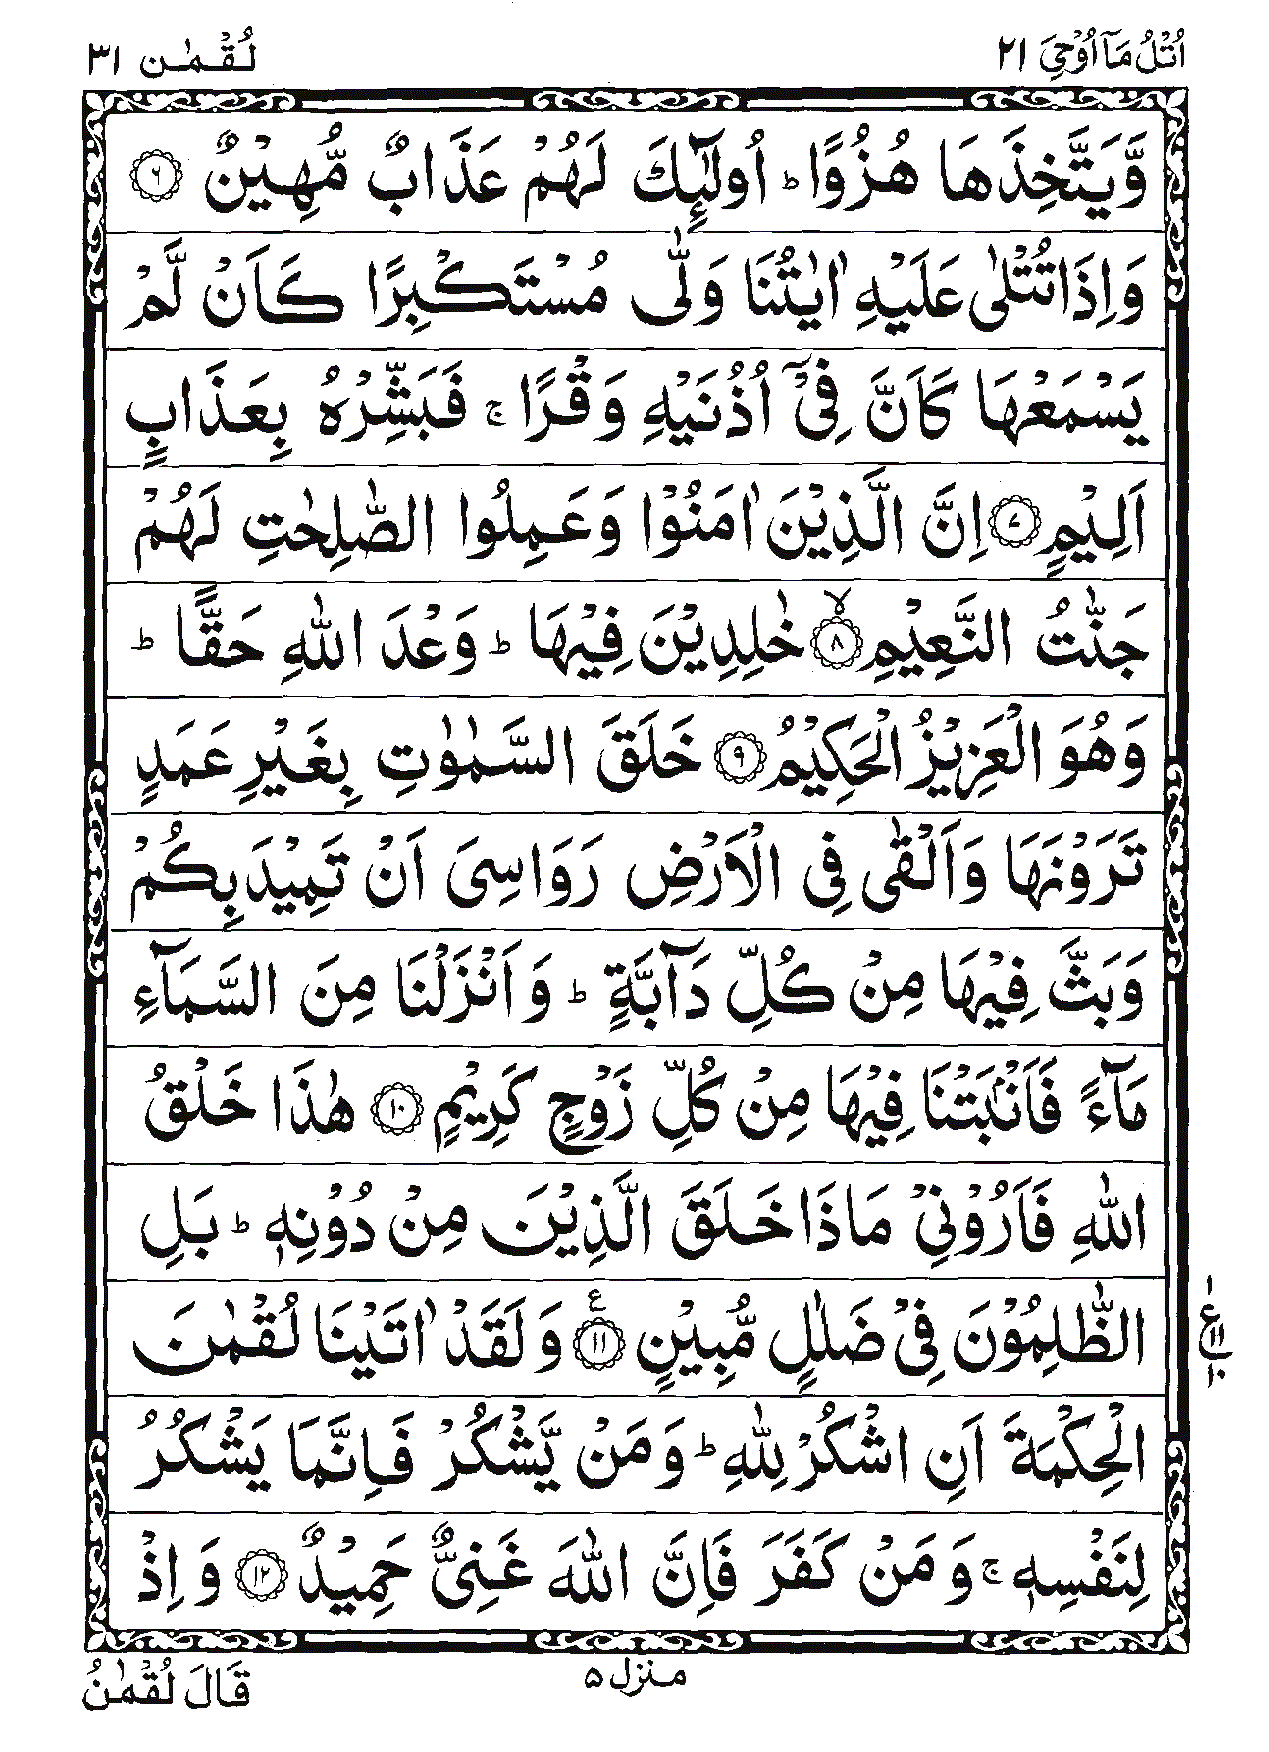 اُتْلُ مَاۤ اُوْحِیَ ٢١
لُقْمٰن ٣١
وَّیَتَّخِذَهَا هُزُوًا ؕ اُولٰٓىِٕكَ لَهُمْ عَذَابٌ مُّهِیْنٌ ۝٦
وَاِذَا تُتْلٰی عَلَیْهِ اٰیٰتُنَا وَلّٰی مُسْتَكْبِرًا كَاَنْ لَّمْ
یَسْمَعْهَا كَاَنَّ فِیْۤ اُذُنَیْهِ وَقْرًا ۚ فَبَشِّرْهُ بِعَذَابٍ
اَلِیْمٍ ۝٧ اِنَّ الَّذِیْنَ اٰمَنُوْا وَعَمِلُوا الصّٰلِحٰتِ لَهُمْ
جَنّٰتُ النَّعِیْمِ ۝٨ۙ خٰلِدِیْنَ فِیْهَا ؕ وَعْدَ اللّٰهِ حَقًّا ؕ
وَهُوَ الْعَزِیْزُ الْحَكِیْمُ ۝٩ خَلَقَ السَّمٰوٰتِ بِغَیْرِ عَمَدٍ
تَرَوْنَهَا وَاَلْقٰی فِی الْاَرْضِ رَوَاسِیَ اَنْ تَمِیْدَ بِكُمْ
وَبَثَّ فِیْهَا مِنْ كُلِّ دَآبَّةٍ ؕ وَاَنْزَلْنَا مِنَ السَّمَآءِ
مَآءً فَاَنْۢبَتْنَا فِیْهَا مِنْ كُلِّ زَوْجٍ كَرِیْمٍ ۝١٠ هٰذَا خَلْقُ
اللّٰهِ فَاَرُوْنِیْ مَاذَا خَلَقَ الَّذِیْنَ مِنْ دُوْنِهٖ ؕ بَلِ
الظّٰلِمُوْنَ فِیْ ضَلٰلٍ مُّبِیْنٍ ۝١١ ع وَلَقَدْ اٰتَیْنَا لُقْمٰنَ
١ ع ١١ ١٠
الْحِكْمَةَ اَنِ اشْكُرْ لِلّٰهِ ؕ وَمَنْ یَّشْكُرْ فَاِنَّمَا یَشْكُرُ
لِنَفْسِهٖ ۚ وَمَنْ كَفَرَ فَاِنَّ اللّٰهَ غَنِیٌّ حَمِیْدٌ ۝١٢ وَاِذْ
منزل ٥
قَالَ لُقْمٰنُ